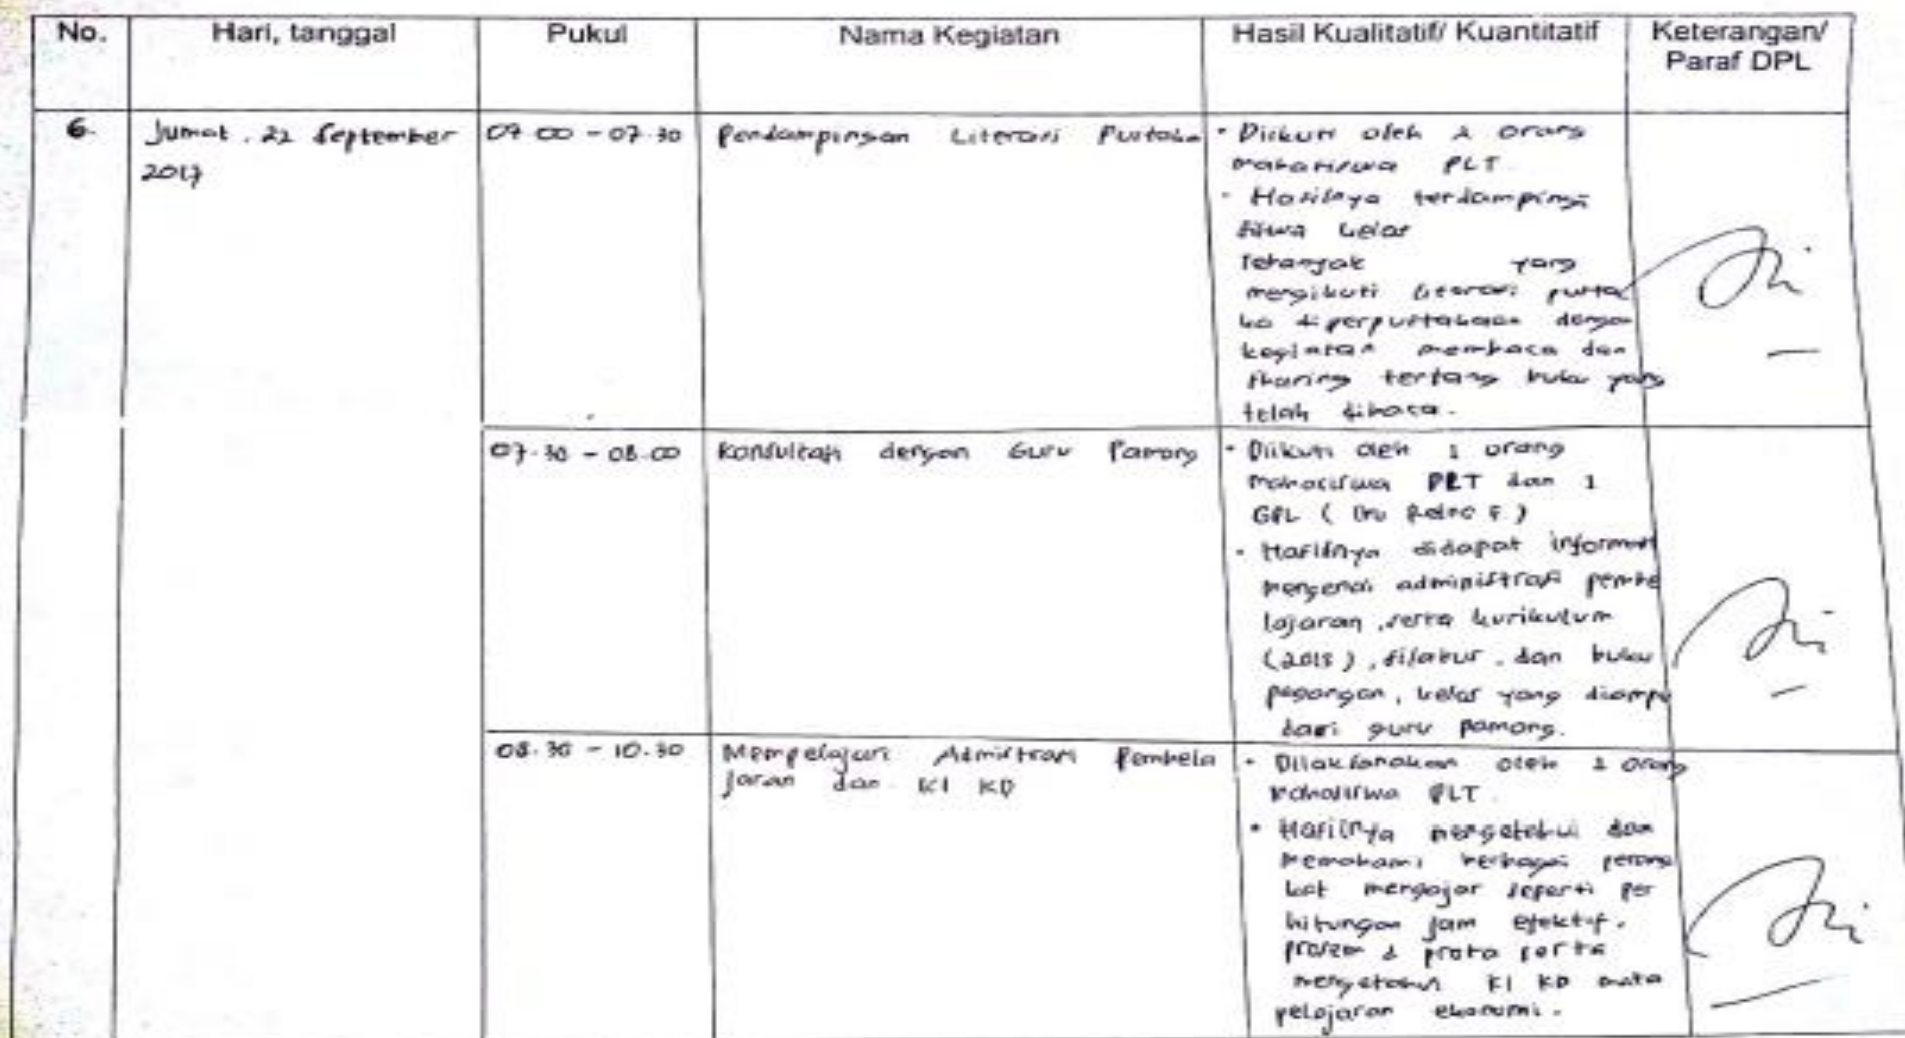 No. Hari, tanggal Pukul Nama Kegiatan Hasil Kualitatif/ Kuantitatif Keterangan/
Paraf DPL
6. Jumat, 22 September 07.00 - 07.30 Pendampingan Literasi Pustaka • Diikuti oleh 2 orang
2017 mahasiswa PLT.
• Hasilnya terdampingi
siswa kelas
sebanyak yang
mengikuti literasi pusta
ka diperpustakaan dengan
kegiatan membaca dan
sharing tentang buku yang
telah dibaca.
07.30 - 08.00 Konsultasi dengan Guru Pamong • Diikuti oleh 1 orang
mahasiswa PLT dan 1
GPL ( Ibu Retno F )
• Hasilnya didapat informasi
mengenai administrasi pembe
lajaran, serta kurikulum
(2013), silabus, dan buku
pegangan, kelas yang diampu
dari guru pamong.
08.30 - 10.30 Mempelajari Admistrasi Pembela • Dilaksanakan oleh orang
jaran dan KI KD mahasiswa PLT.
• Hasilnya mengetahui dan
memahami berbagai perang
kat mengajar seperti per
hitungan jam efektif.
prosem & prota serta
mengetahui KI KD mata
pelajaran ekonomi.